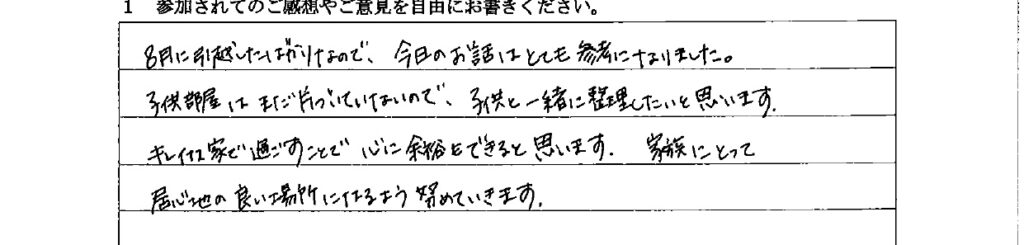 1 参加されてのご感想やご意見を自由にお書きください。
8月に引越したばかりなので、今日のお話はとても参考になりました。
子供部屋はまだ片づいていないので、子供と一緒に整理したいと思います。
キレイな家で過ごすことで心に余裕もできると思います。家族にとって
居心地の良い場所になるよう努めていきます。